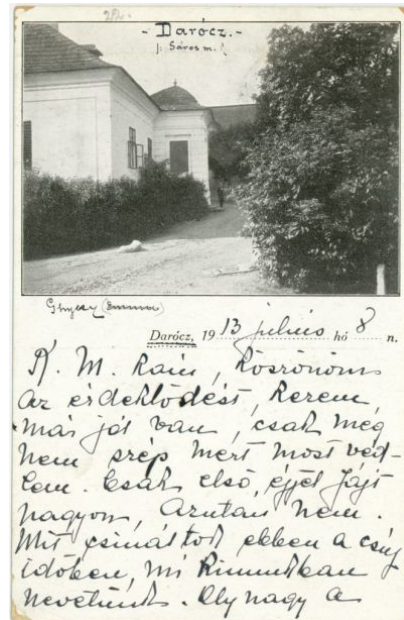 - Darócz. -
Sáros m.
Ghyczy (Emma)
Darócz, 1913 julius hó 8 n.
K. M. Rain, Köszönöm
az érdeklődést, kerem,
már jól van, csak meg
nem szép mert most ved-
lem. Csak első éjjel fájt
nagyon, azután nem.
Mit csináltok ebben a csúf
időben, mi
nevetünk. Oly nagy a